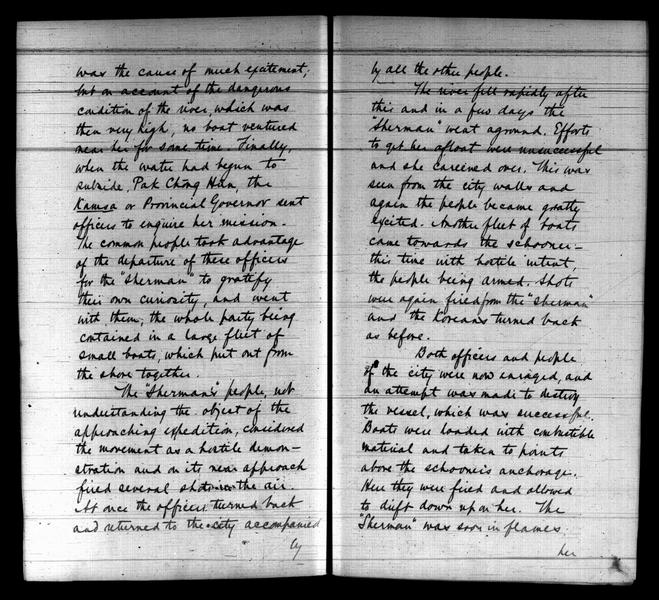 was the cause of much excitement;
but on account of the dangerous
condition of the river, which was
then very high, no boat ventured
near her for some time. Finally,
when the water had begun to
subside, Pak Chong Hun, the
Kamsa or Provincial Governor sent
officers to enquire her mission.
The common people took advantage
of the departure of these officers
for the "Sherman" to gratify
their own curiosity, and went
with them; the whole party being
contained in a large fleet of
small boats, which put out from
the shore together.
The "Sherman's" people, not
understanding the object of the
approaching expedition, considered
the movement as a hostile demon-
stration and on its near approach
fired several shots in the air.
At once the officers turned back
and returned to the city accompanied
by
by all the other people.
The river fell rapidly after
this and in a few days the
"Sherman" went aground. Efforts
to get her afloat were unsuccessful
and she careened over. This was
seen from the city walls and
again the people became greatly
excited. Another fleet of boats
came towards the schooner –
this time with hostile intent,
the people being armed. Shots
were again fired from the "Sherman"
and the Koreans turned back
as before.
Both officers and people
of the city were now enraged, and
an attempt was made to destroy
the vessel, which was successful.
Boats were loaded with combustible
material and taken to points
above the schooner's anchorage.
Here they were fired and allowed
to drift down upon her. The
"Sherman" was soon in flames.
her